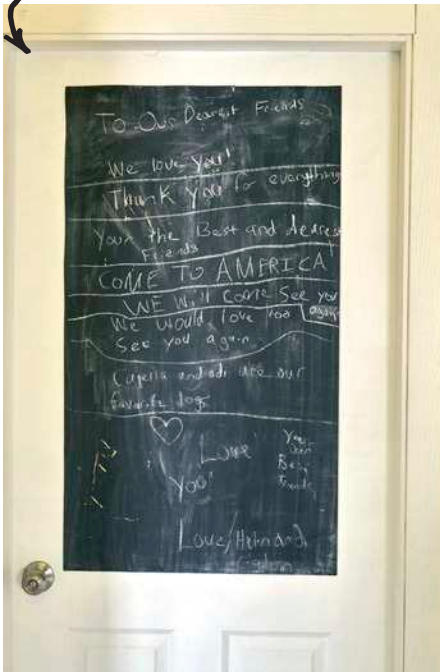 To Our Dearest Friends
We love you!
Thank you for everything
Your the Best and dearest
Friends
COME TO AMERICA
WE Will Come See you
again
We would love too
See you again
and are our
favorite dogs
Love
You!
Your
Best
Friends
Love,